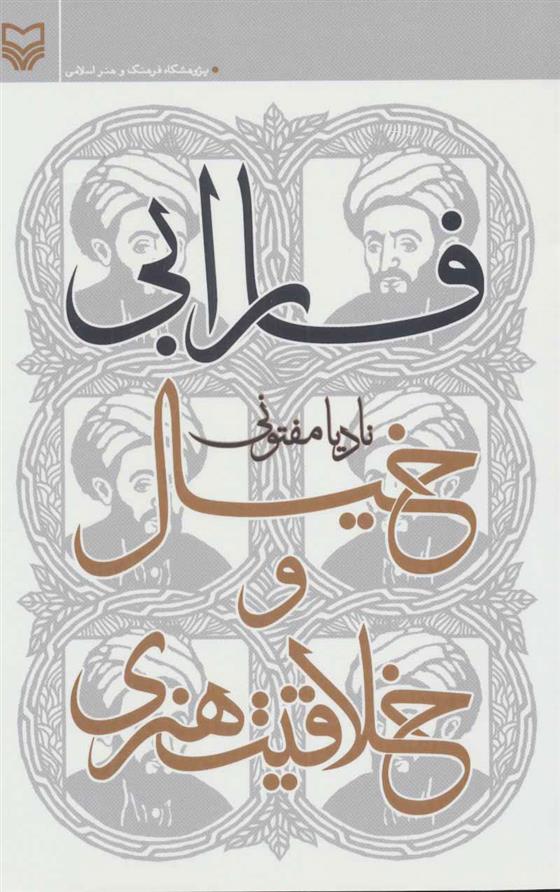 پژوهشگاه فرهنگ و هنر اسلامی
فارابی
نادیا مفتونی
خیال
و
خلاقیت هنری